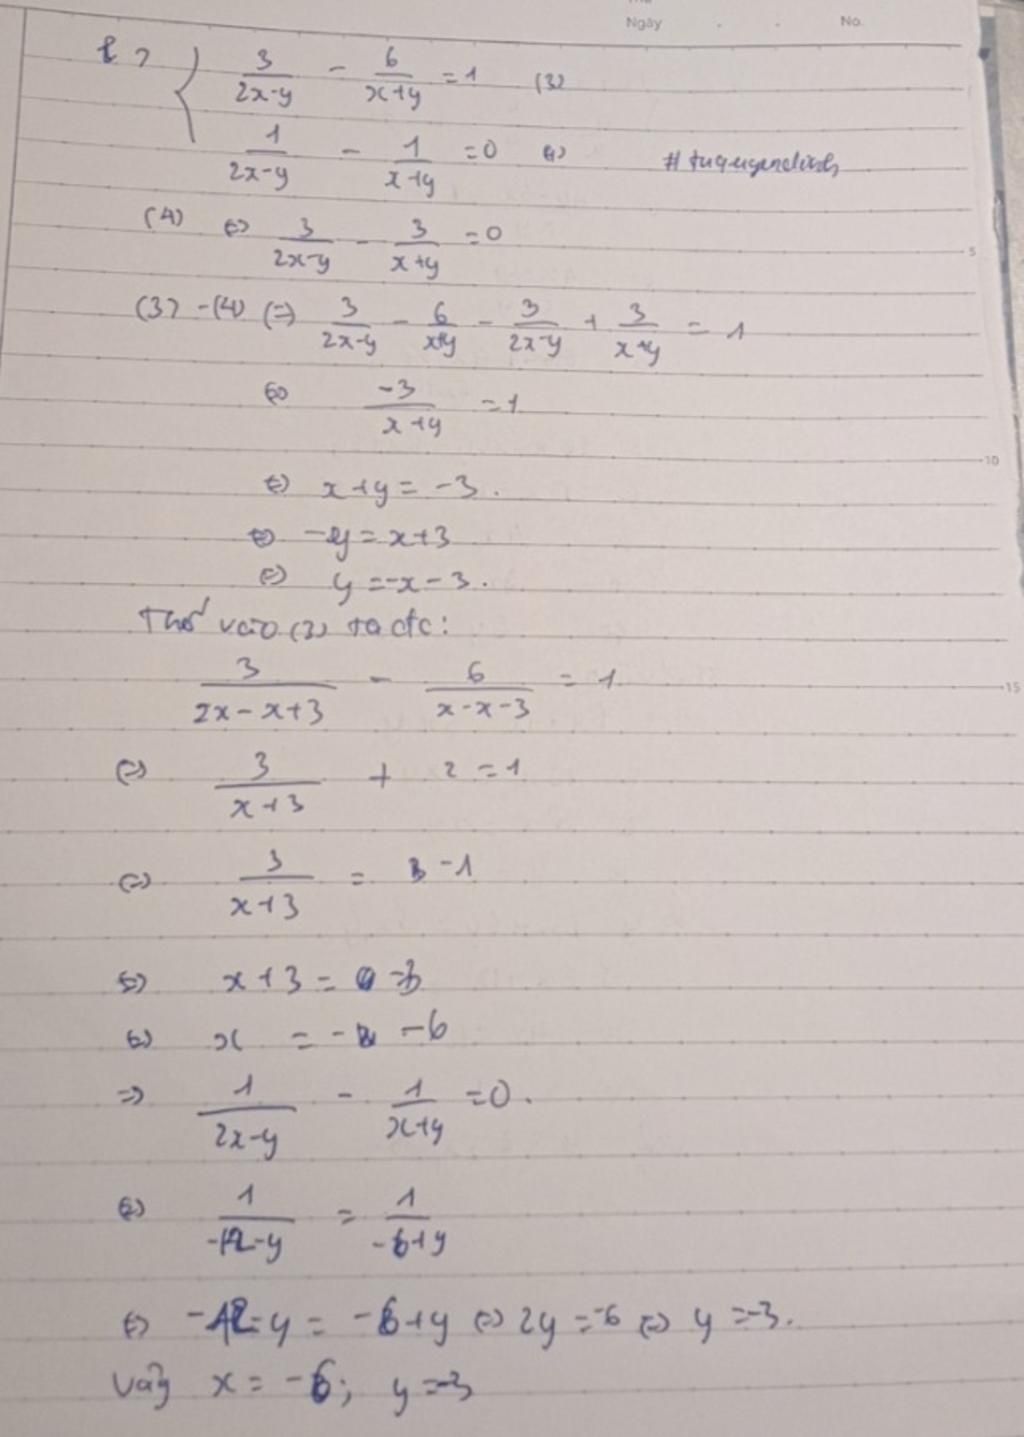 Ngày . . No.
b) { 3/(2x-y) - 6/(x+y) = 1 (3)
1/(2x-y) - 1/(x+y) = 0 (4)
(4) <=> 3/(2x-y) - 3/(x+y) = 0
5
(3) - (4) <=> 3/(2x-y) - 6/(x+y) - 3/(2x-y) + 3/(x+y) = 1
<=> -3/(x+y) = 1
10
<=> x+y = -3.
<=> -y = x+3
<=> y = -x-3.
Thế vào (3) ta đc:
3/(2x-x+3) - 6/(x-x-3) = 1
15
<=> 3/(x+3) + 2 = 1
<=> 3/(x+3) = -1
<=> x+3 = -3
<=> x = -6
=> 1/(2x-y) - 1/(x+y) = 0.
<=> 1/(-12-y) = 1/(-6+y)
<=> -12-y = -6+y <=> 2y = -6 <=> y = -3.
Vậy x = -6; y = -3